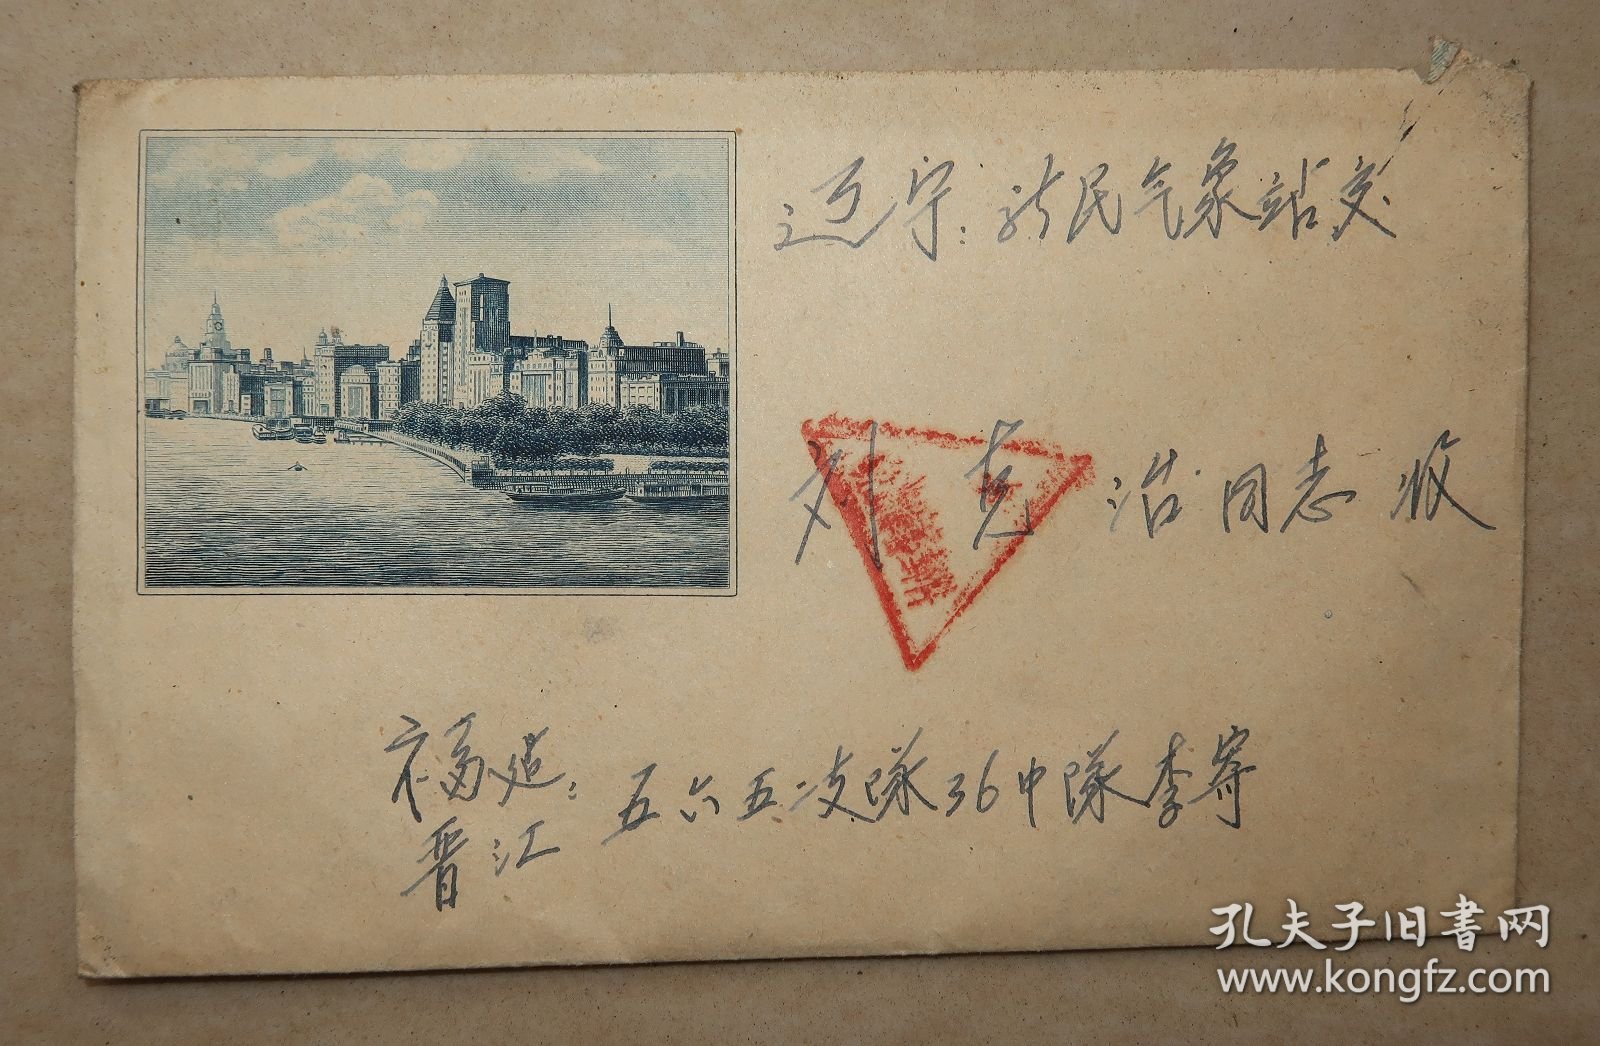 辽宁:新民气象站交
刘克治同志收
福建:
晋江
五六五支队36中队李寄
孔夫子旧书网
www.kongfz.com